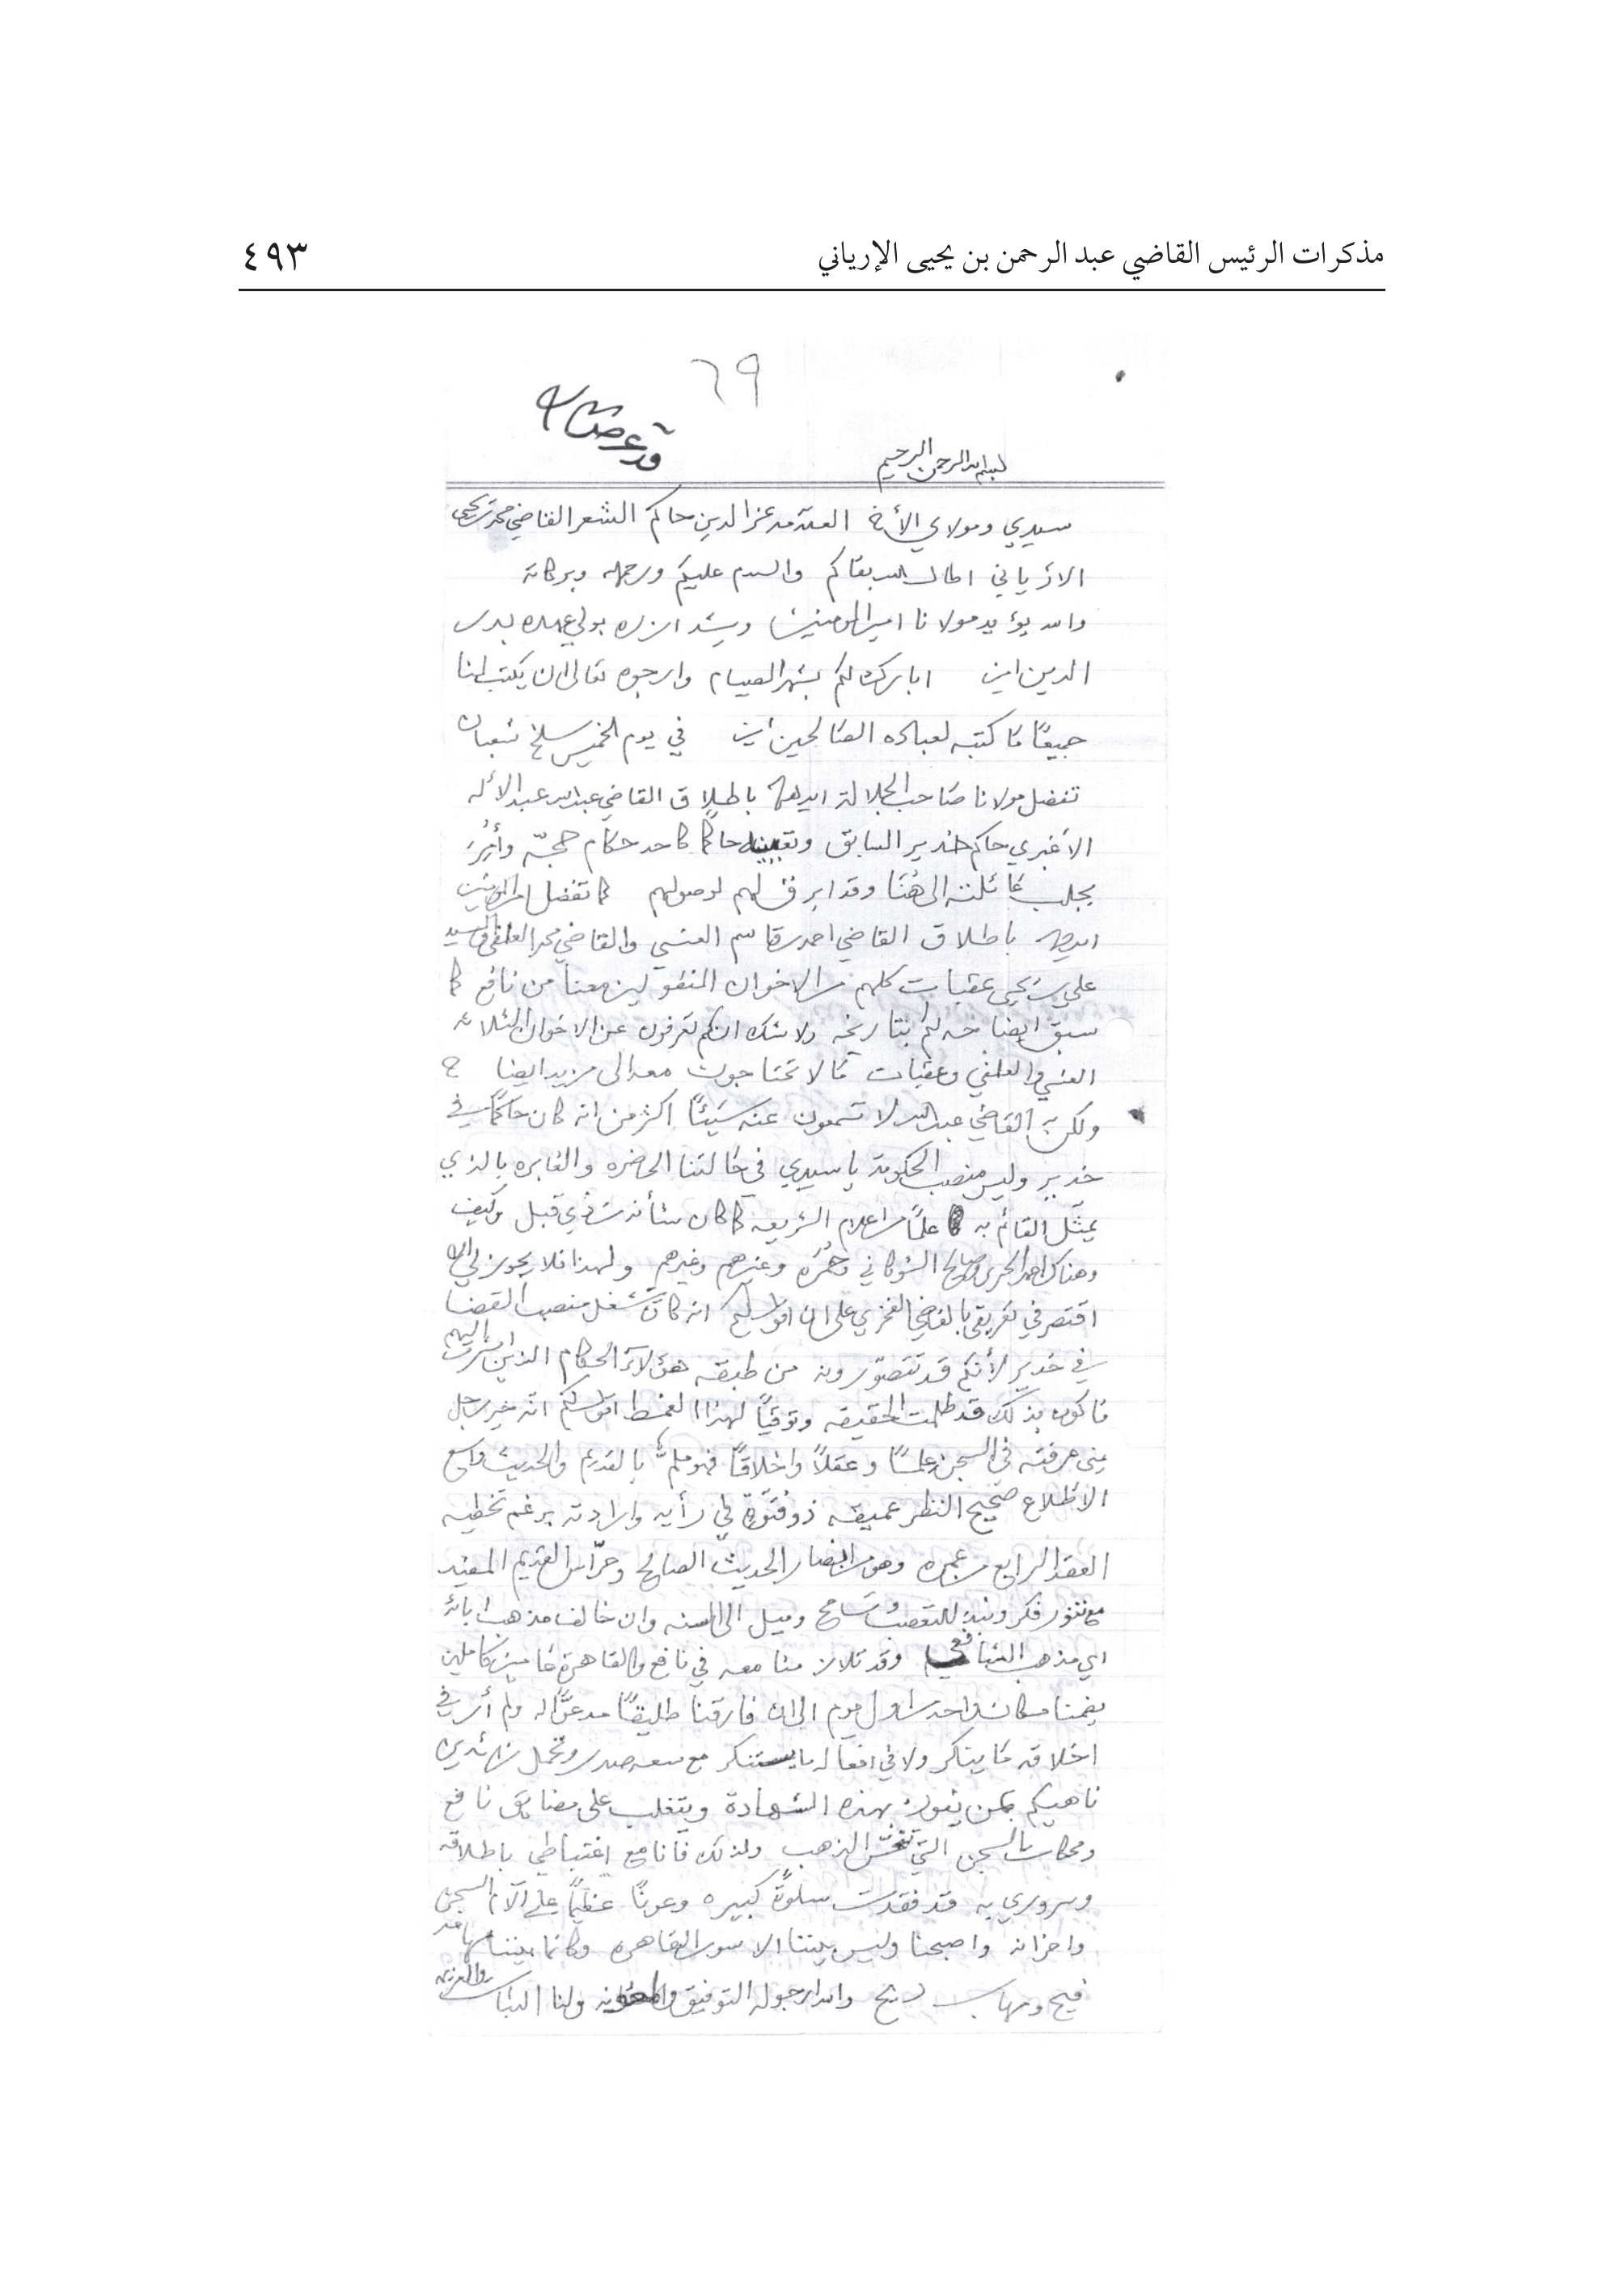 مذكرات الرئيس القاضي عبد الرحمن بن يحيى الإرياني ٤٩٣
٦٩
بسم الله الرحمن الرحيم
سيدي ومولاي الأخ العلامة عز الدين حاكم الشعر القاضي محمد بن يحيى
الارياني اطال الله بقاكم والسلام عليكم ورحمة الله وبركاته
والله يؤيد مولانا امير المومنين ويشد ازره بولي عهده بدر
الدين امين ابارك لكم بشهر الصيام وارجوه تعالى ان يكتب لنا
جميعًا مَا كتبه لعباده الصَالحين امين في يوم الخميس سلخ شعبان
تفضل مولانا صَاحب الجلالة ايده الله باطلاق القاضي عبدالله عبد الأله
الاغبري حاكم خدير السابق وتعيينه حاكمًا كاحد حكام حجّه وأمَرَ
بجلب عَائلته الى هُنَا وقد ابرق لهم لوصولهم كما تفضل امير المومنين
ايده الله باطلاق القاضي احمد قاسم العنسي والقاضي محمد العلفي والسيد
علي بن يحيى عقبات كلهم من الاخوان المنقولين معنا من نافع كما
سبق ايضاحه لكم بتاريخه ولا شك انكم تعرفون عن الاخوان الثلاثه
العنسي والعلفي وعقبات مَا لا تحتاجون معه الى مزيد ايضاح
ولكن القاضي عبدالله لا تسمعون عنه شَيئًا اكثر من انه كان حَاكمًا في
خدير وليس منصب الحكومة يا سيدي في حَالتنا الحاضره والغابره بالذي
يمثّل القائم به علمًا من اعلام الشريعه كما كان شأنه من ذي قبل وكيف
وهناك احمد الجبري وصالح الشوكاني وحُمُرَه وغيرهم وغيرهم ولهذا فلا يجوز لي ان
اقتصر في تعريفي بالقاضي الغبري على ان اقول لكم انه كان يشغل منصب القضا
في خدير لأنكم قد تتصوّرونه من طبقه هؤلاء الحكام الذين اشرت اليهم
فاكون بذلك قد ظلمت الحقيقه وتوقيًا لهذا الغمط اقول لكم انه خير رجل
عرفته في السجن علمًا وعقلاً واخلاقًا فهو ملمٌّ بالقديم والحديث واسع
الاطلاع صَحيح النظر عميقه ذو قوّة في رأيه وارادته برغم تخطيه
العقد الرابع من عمره وهو من انصار الحديث الصالح وحرّاس القديم المفيد
مع تنور فكر ونبذ للتعصب وتسَامح وميل الى السنه وان خالف مذهب ابائه
اي مذهب الشافعي وقد تلازمنا معه في نافع والقاهرة عَامين كاملين
يضمنا مكان واحد من اول يوم الى ان فارقنا طليقًا ولم أر في
اخلاقه مَا ينكر ولا في افعَاله ما يستنكر مع سعه صدر وتحمل زائدين
ناهيكم بمن يفوز بهذه الشهادة ويتغلب على مضايق نافع
ومحكات السجن التي تغشّ الذهب ولذلك فأنا مع اغتباطي باطلاقه
وسروري به قد فقدت سلوةً كبيره وعونًا عظيمًا على آلآم السجن
واحزانه واصبحنا وليس بيننا الا سور القاهره وكانما بيننا مهامه
فيح ومهاب ريح والله ارجو له التوفيق والمعونه ولنا الثبات والعزيمه